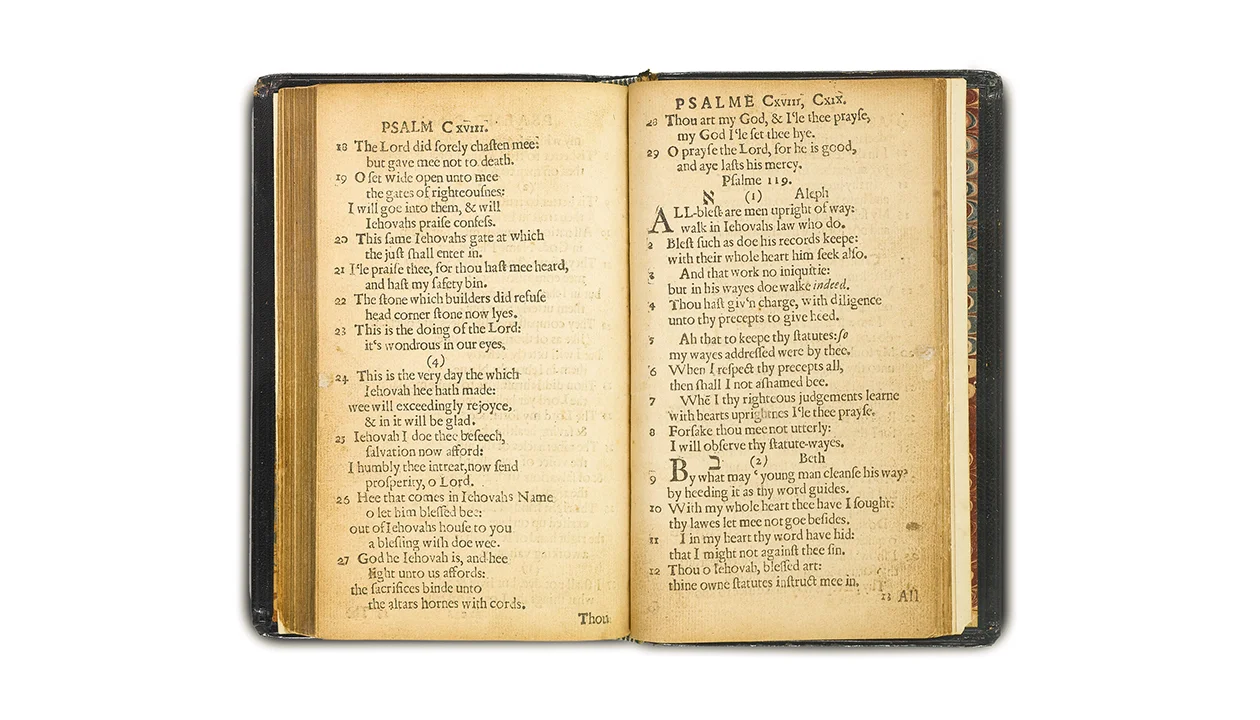 PSALM Cxviii.
18 The Lord did ſorely chaſten mee:
but gave mee not to death.
19 O ſet wide open unto mee
the gates of righteouſnes:
I will goe into them, & will
Iehovahs praiſe confeſs.
20 This ſame Iehovahs gate at which
the juſt ſhall enter in.
21 I'le praiſe thee, for thou haſt mee heard,
and haſt my ſafety bin.
22 The ſtone which builders did refuſe
head corner ſtone now lyes.
23 This is the doing of the Lord:
it's wondrous in our eyes,
(4)
24 This is the very day the which
Iehovah hee hath made:
wee will exceedingly rejoyce,
& in it will be glad.
25 Iehovah I doe thee beſeech,
ſalvation now afford:
I humbly thee intreat,now ſend
proſperity, o Lord.
26 Hee that comes in Iehovahs Name
o let him bleſſed bee:
out of Iehovahs houſe to you
a bleſſing wiſh doe wee.
27 God he Iehovah is, and hee
light unto us affords:
the ſacrifices binde unto
the altars hornes with cords.
Thou
PSALME Cxviii, Cxix.
28 Thou art my God, & I'le thee prayſe,
my God I'le ſet thee hye.
29 O prayſe the Lord, for he is good,
and aye laſts his mercy.
Pſalme 119.
א (1) Aleph
ALL-bleſt are men upright of way:
walk in Iehovahs law who do.
2 Bleſt ſuch as doe his records keepe:
with their whole heart him ſeek alſo.
3 And that work no iniquitie:
but in his wayes doe walke indeed.
4 Thou haſt giv'n charge, with diligence
unto thy precepts to give heed.
5 Ah that to keepe thy ſtatutes: ſo
my wayes addreſſed were by thee.
6 When I reſpect thy precepts all,
then ſhall I not aſhamed bee.
7 Whē I thy righteous judgements learne
with hearts uprightnes I'le thee prayſe.
8 Forſake thou mee not utterly:
I will obſerve thy ſtatute-wayes.
ב (2) Beth
9 By what may ' young man cleanſe his way?
by heeding it as thy word guides.
10 With my whole heart thee have I ſought:
thy lawes let mee not goe beſides.
11 I in my heart thy word have hid:
that I might not againſt thee ſin.
12 Thou o Iehovah, bleſſed art:
thine owne ſtatutes inſtruct mee in,
13 All